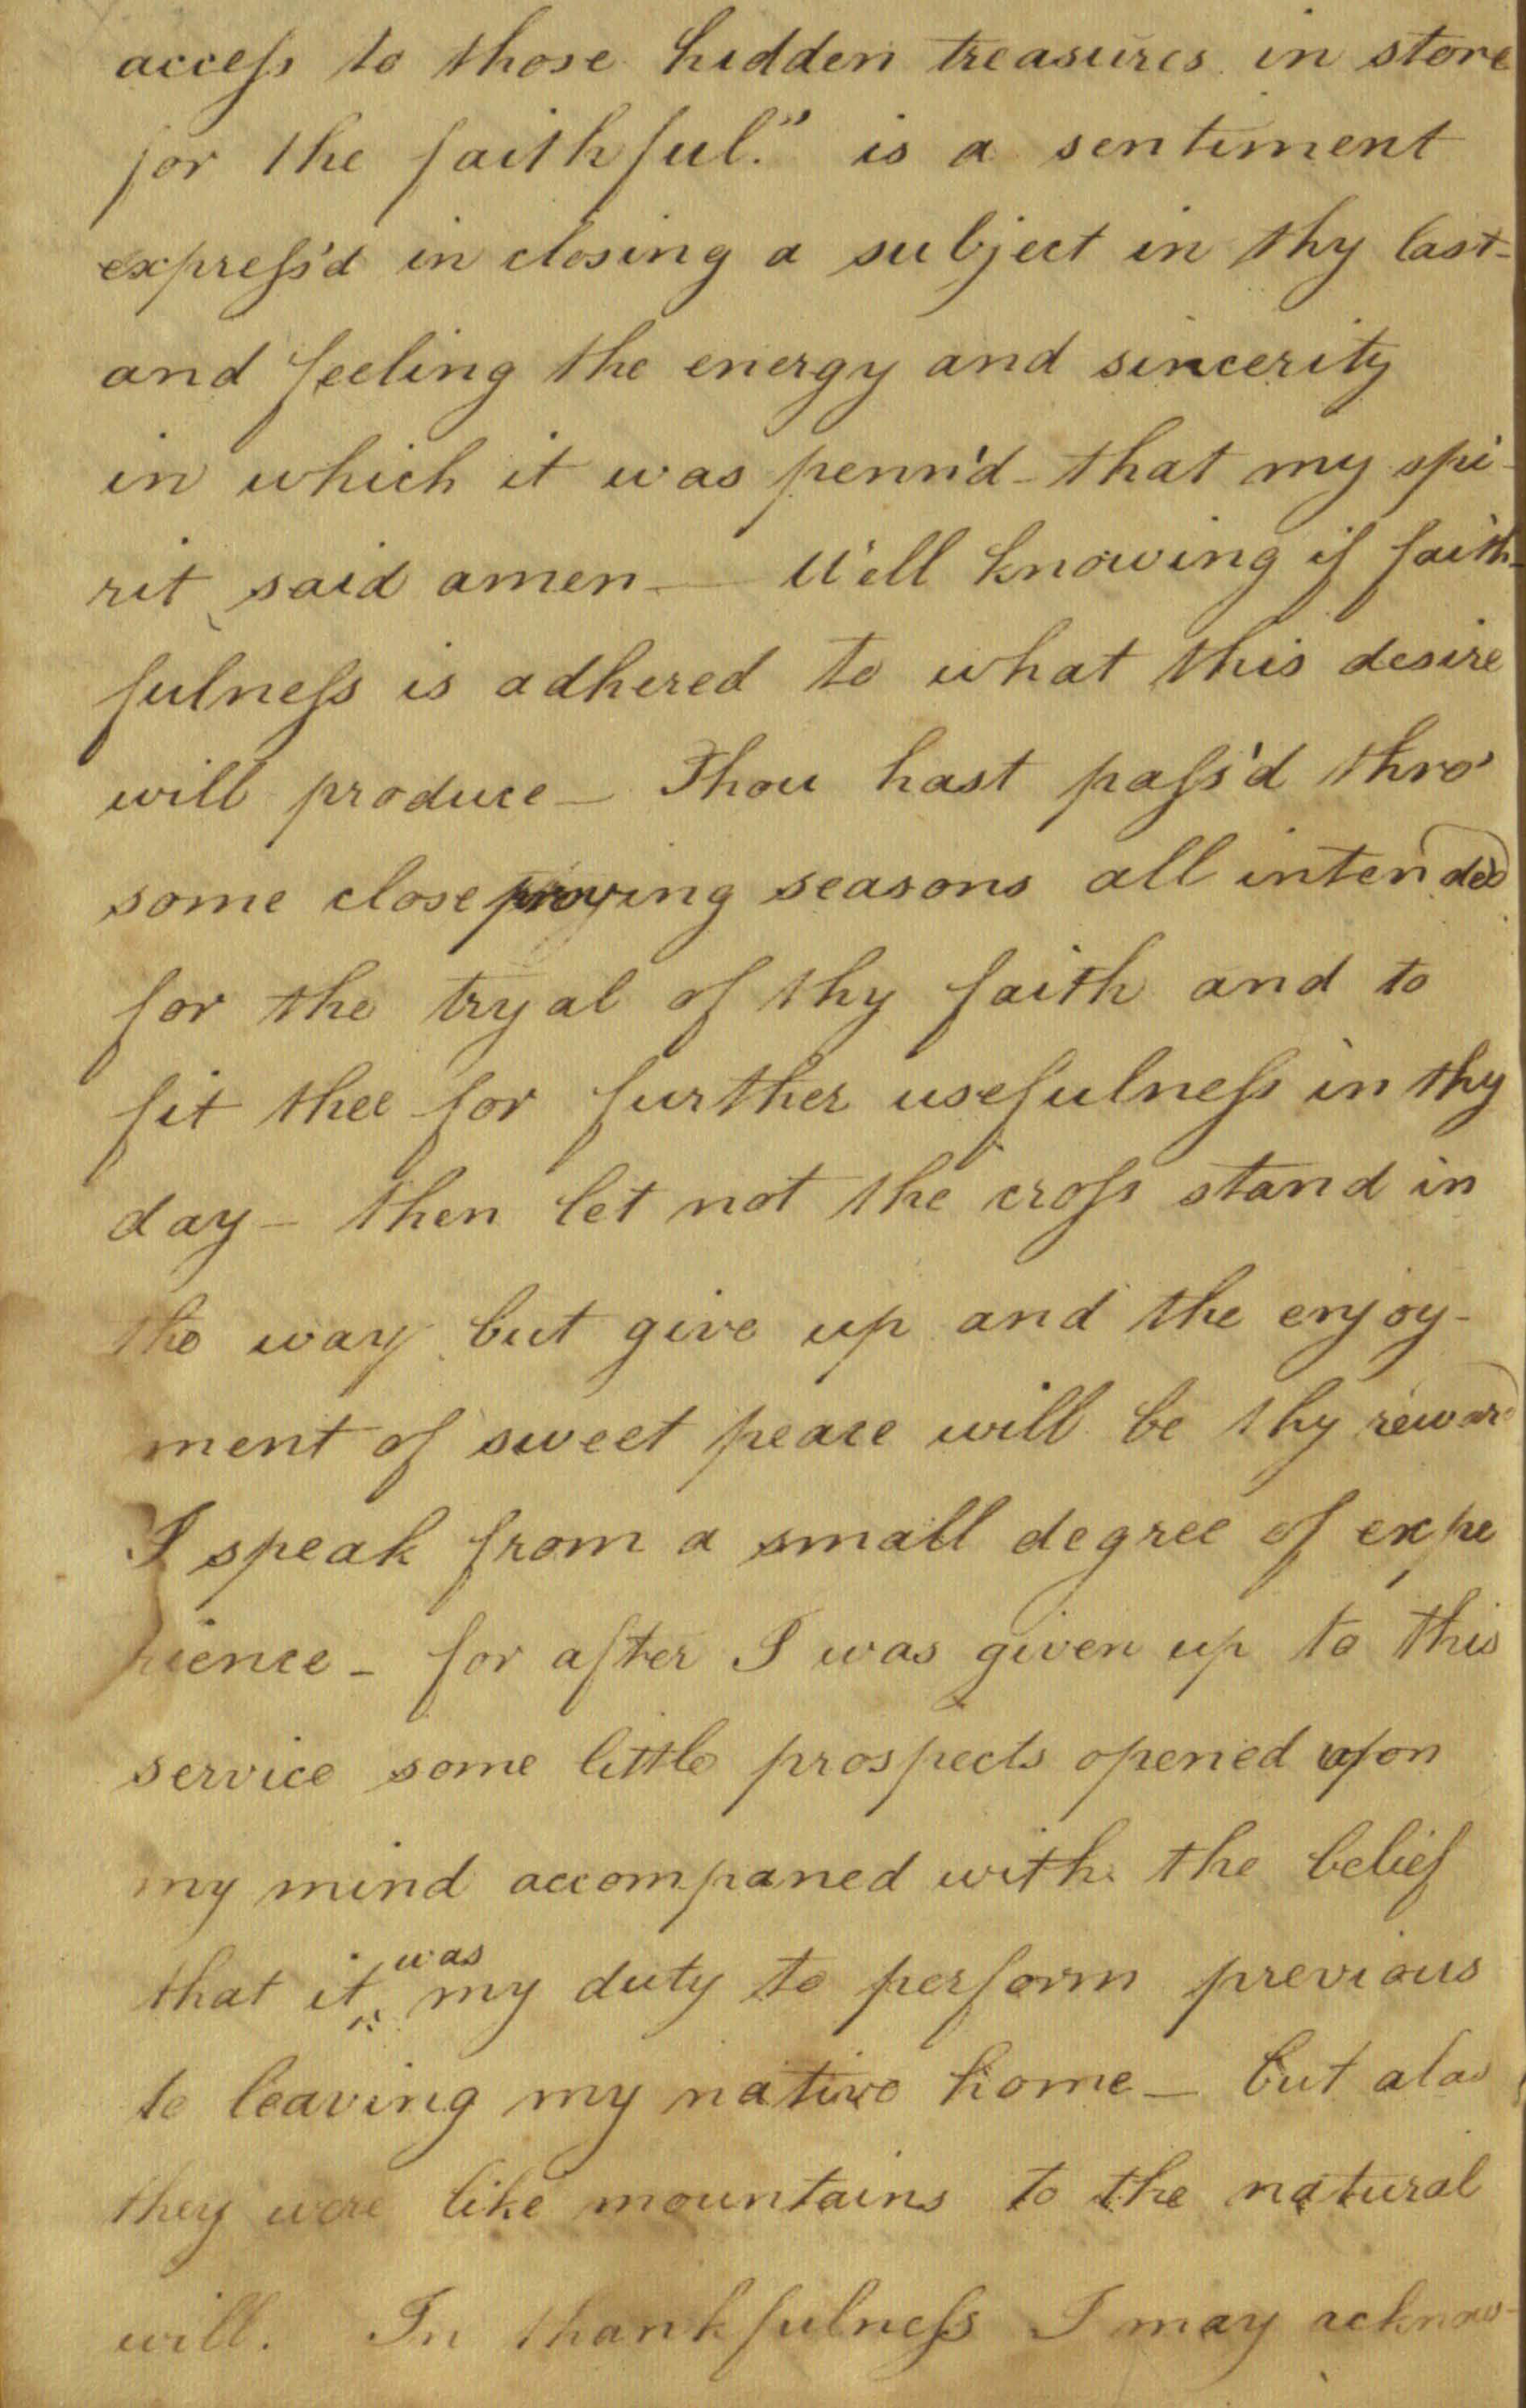 access to those hidden treasures in store
for the faithful." is a sentiment
express'd in closing a subject in thy last-
and feeling the energy and sincerity
in which it was penn'd - that my spi-
rit said amen - Well knowing if faith-
fulness is adhered to what this desire
will produce - Thou hast pass'd thro'
some close proving seasons all intended
for the tryal of thy faith and to
fit thee for further usefulness in thy
day - then let not the cross stand in
the way but give up and the enjoy-
ment of sweet peace will be thy reward
I speak from a small degree of expe
rience - for after I was given up to this
service some little prospects opened upon
my mind accompaned with the belief
that it was my duty to perform previous
to leaving my native home - but alas
they were like mountains to the natural
will. In thankfulness I may acknow-